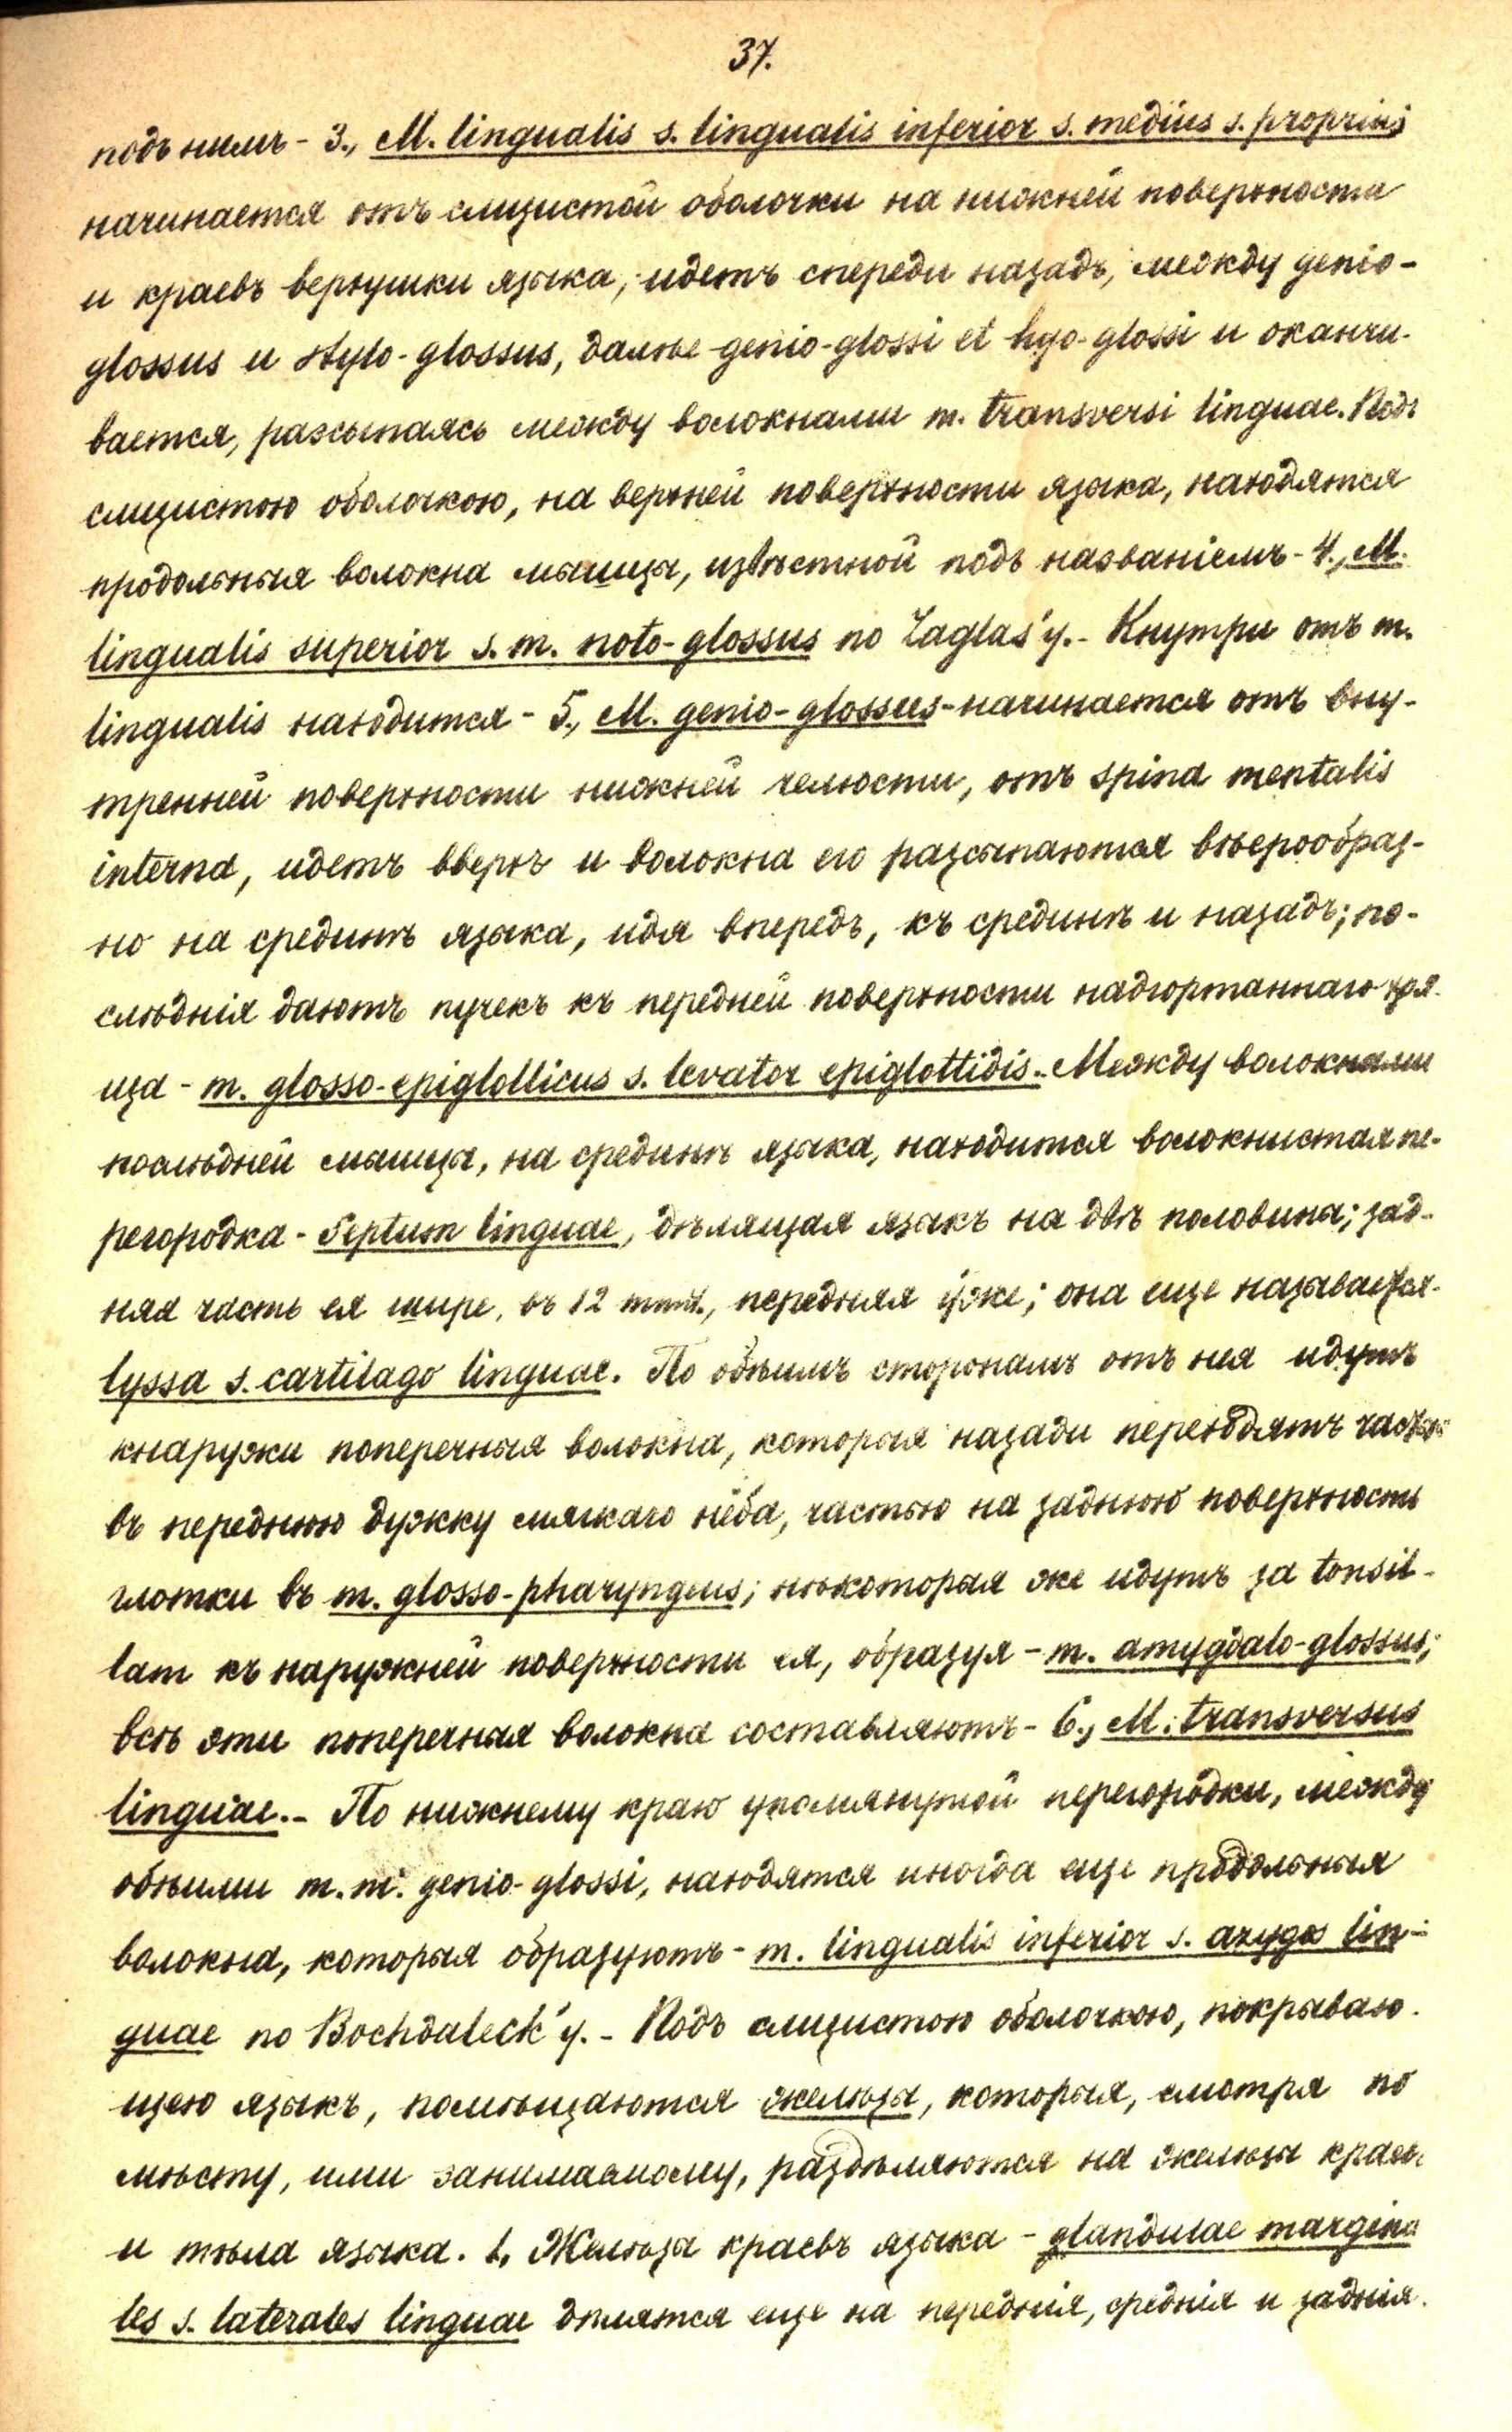 37.
подъ нимъ - 3., M. lingualis s. lingualis inferior s. medius s. proprius
начинается отъ слизистой оболочки на нижней поверхности
и краевъ верхушки языка, идетъ спереди назадъ, между genio-
glossus и stylo-glossus, далѣе genio-glossi et hyo-glossi и оканчи-
вается, разсыпаясь между волокнами m. transversi linguae. Подъ
слизистою оболочкою, на верхней поверхности языка, находятся
продольныя волокна мышцы, извѣстной подъ названіемъ - 4., M.
lingualis superior s. m. noto-glossus по Zaglas'у. - Кнутри отъ m.
lingualis находится - 5., M. genio-glossus - начинается отъ вну-
тренней поверхности нижней челюсти, отъ spina mentalis
interna, идетъ вверхъ и волокна его разсыпаются вѣерообраз-
но на срединѣ языка, идя впередъ, къ срединѣ и назадъ; по-
слѣднія даютъ пучекъ къ передней поверхности надгортаннаго хря-
ща - m. glosso-epiglotticus s. levator epiglottidis. - Между волокнами
послѣдней мышцы, на срединѣ языка, находится волокнистая пе-
регородка - Septum linguae, дѣлящая языкъ на двѣ половины; зад-
няя часть ея шире, въ 12 mmt., передняя уже; она еще называется -
lyssa s. cartilago linguae. По обѣимъ сторонамъ отъ нея идутъ
кнаружи поперечныя волокна, которыя назади переходятъ частью
въ переднюю дужку мягкаго нёба, частью на заднюю поверхность
глотки въ m. glosso-pharyngeus; нѣкоторыя же идутъ за tonsil-
lam къ наружней поверхности ея, образуя - m. amygdalo-glossus;
всѣ эти поперечныя волокна составляютъ - 6., M. transversus
linguae. - По нижнему краю упомянутой перегородки, между
обѣими m. m. genio-glossi, находятся иногда еще продольныя
волокна, которыя образуютъ - m. lingualis inferior s. azygos lin-
guae по Bochdaleck'у. - Подъ слизистою оболочкою, покрываю-
щею языкъ, помѣщаются желѣзы, которыя, смотря по
мѣсту, ими занимаемому, раздѣляются на желѣзы краевъ
и тѣла языка. 1, Желѣзы краевъ языка - glandulae margina
les s. laterales linguae дѣлятся еще на переднія, среднія и заднія.